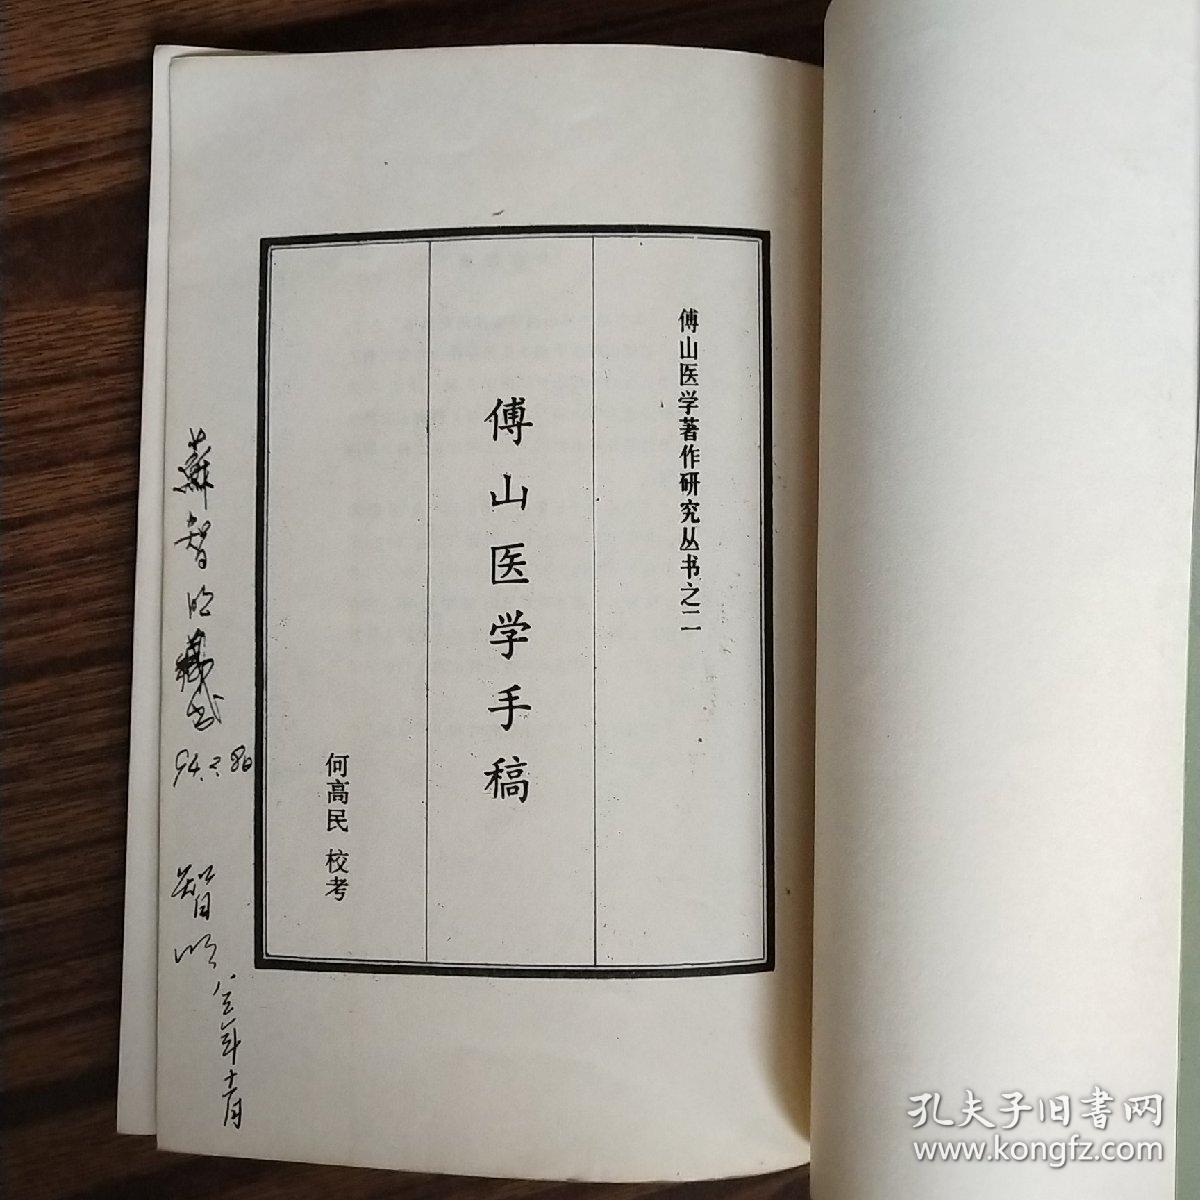 傅山医学著作研究丛书之二
傅山医学手稿
何高民 校考
蘇智明藏书
智明
孔夫子旧書网
www.kongfz.com